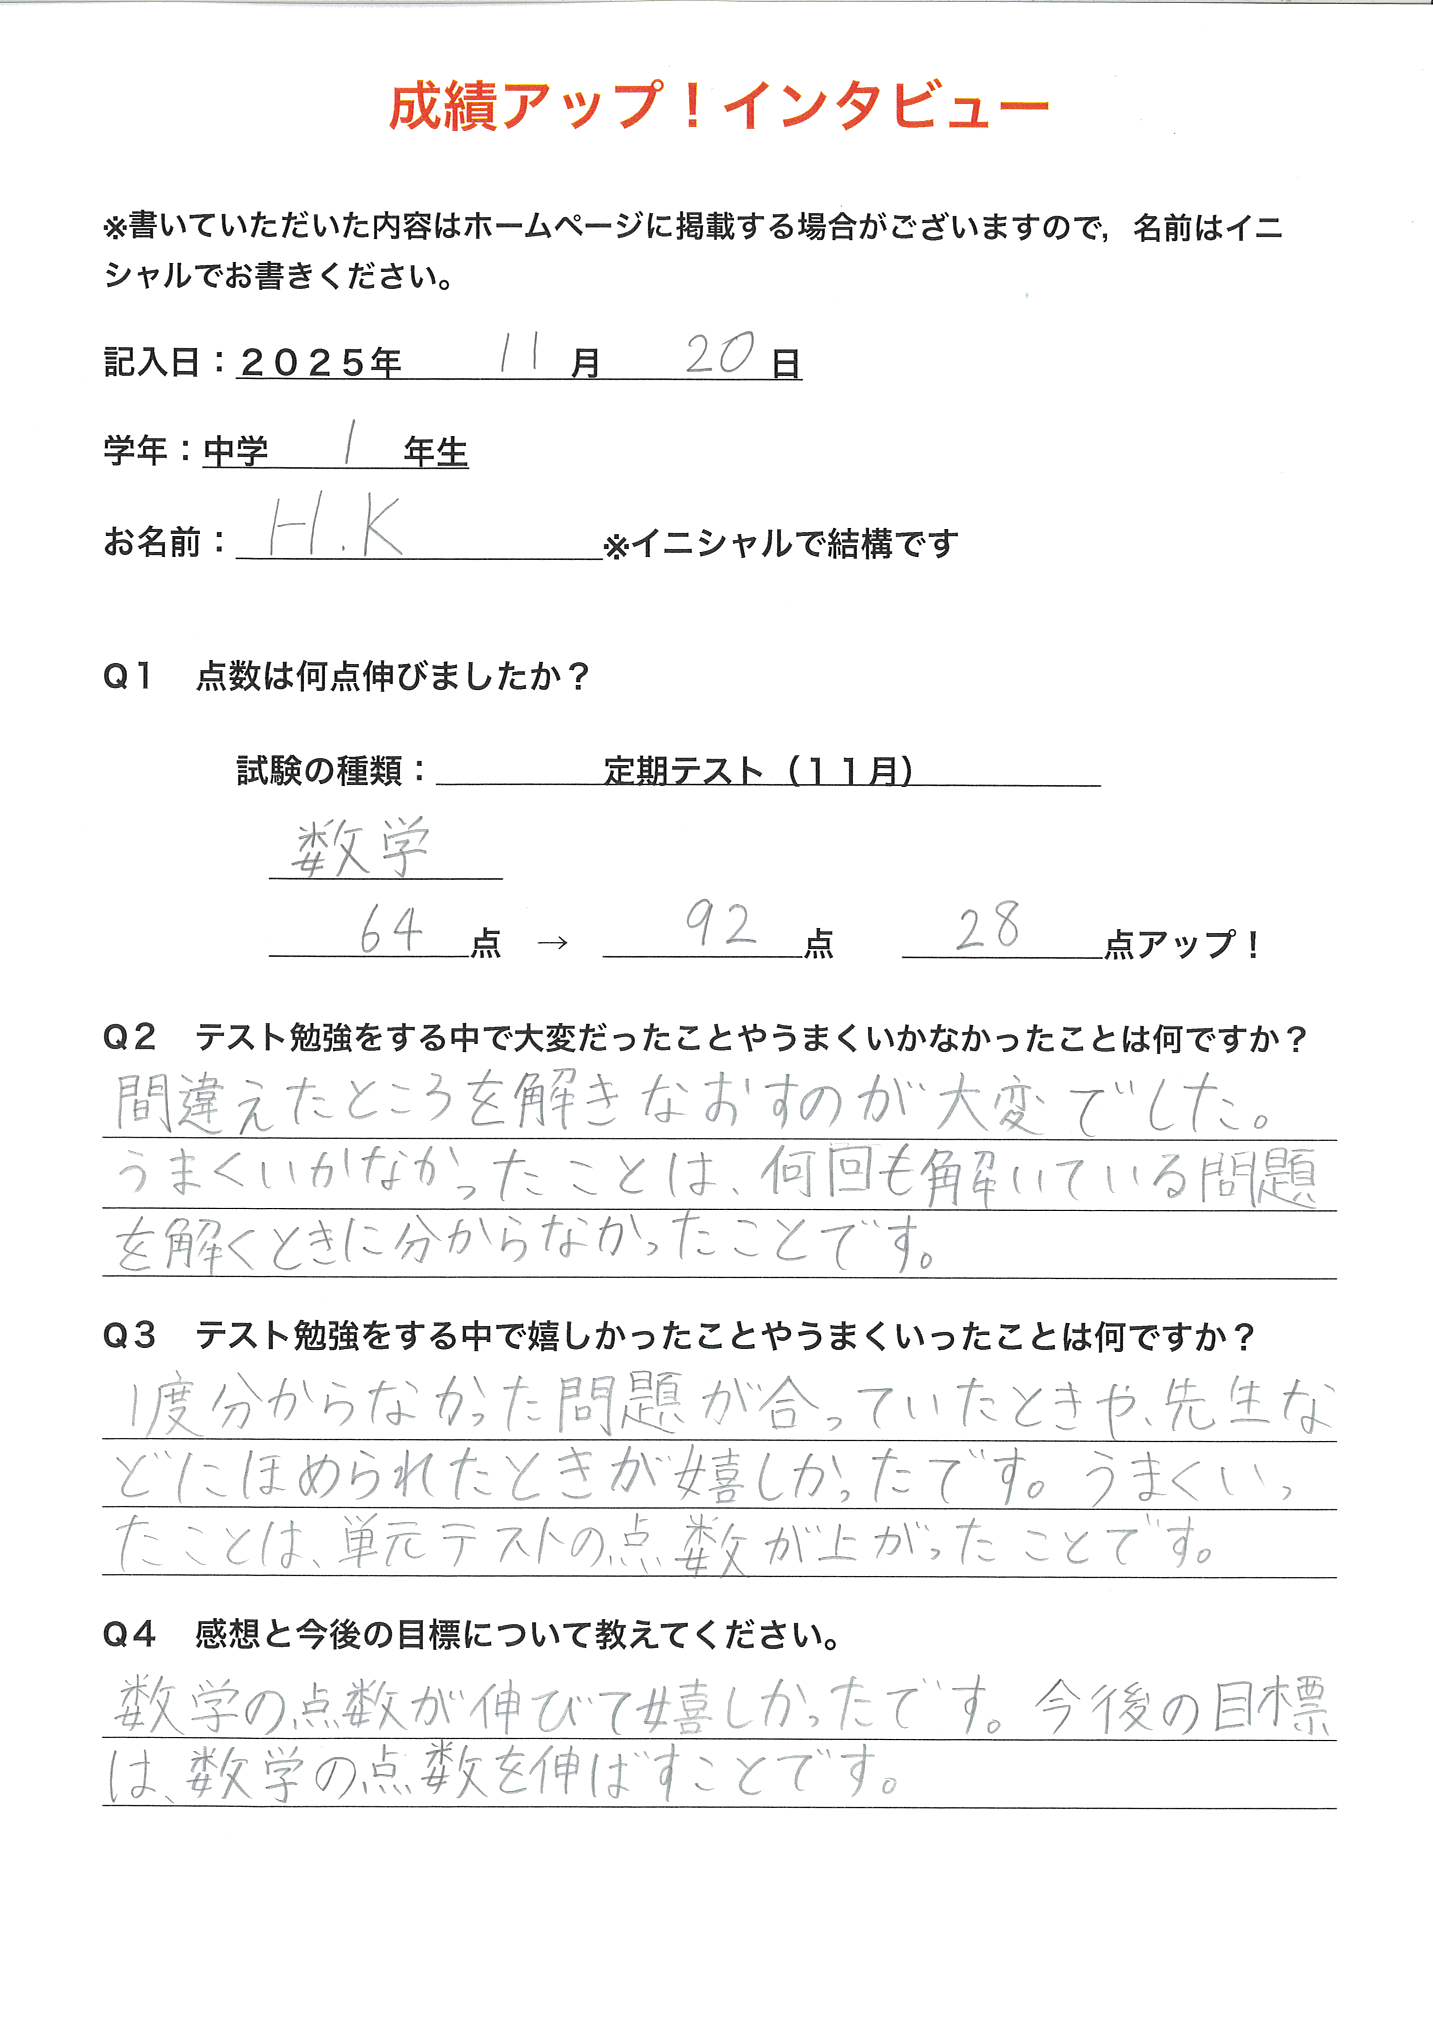 成績アップ！インタビュー
※書いていただいた内容はホームページに掲載する場合がございますので，名前はイニ
シャルでお書きください。
記入日：２０２５年 11 月 20 日
学年：中学 1 年生
お名前： H.K ※イニシャルで結構です
Ｑ１　点数は何点伸びましたか？
試験の種類： 定期テスト（１１月）
数学
64 点 → 92 点 28 点アップ！
Ｑ２　テスト勉強をする中で大変だったことやうまくいかなかったことは何ですか？
間違えたところを解きなおすのが大変でした。
うまくいかなかったことは、何回も解いている問題
を解くときに分からなかったことです。
Ｑ３　テスト勉強をする中で嬉しかったことやうまくいったことは何ですか？
1度分からなかった問題が合っていたときや、先生な
どにほめられたときが嬉しかったです。うまくいっ
たことは、単元テストの点数が上がったことです。
Ｑ４　感想と今後の目標について教えてください。
数学の点数が伸びて嬉しかったです。今後の目標
は、数学の点数を伸ばすことです。